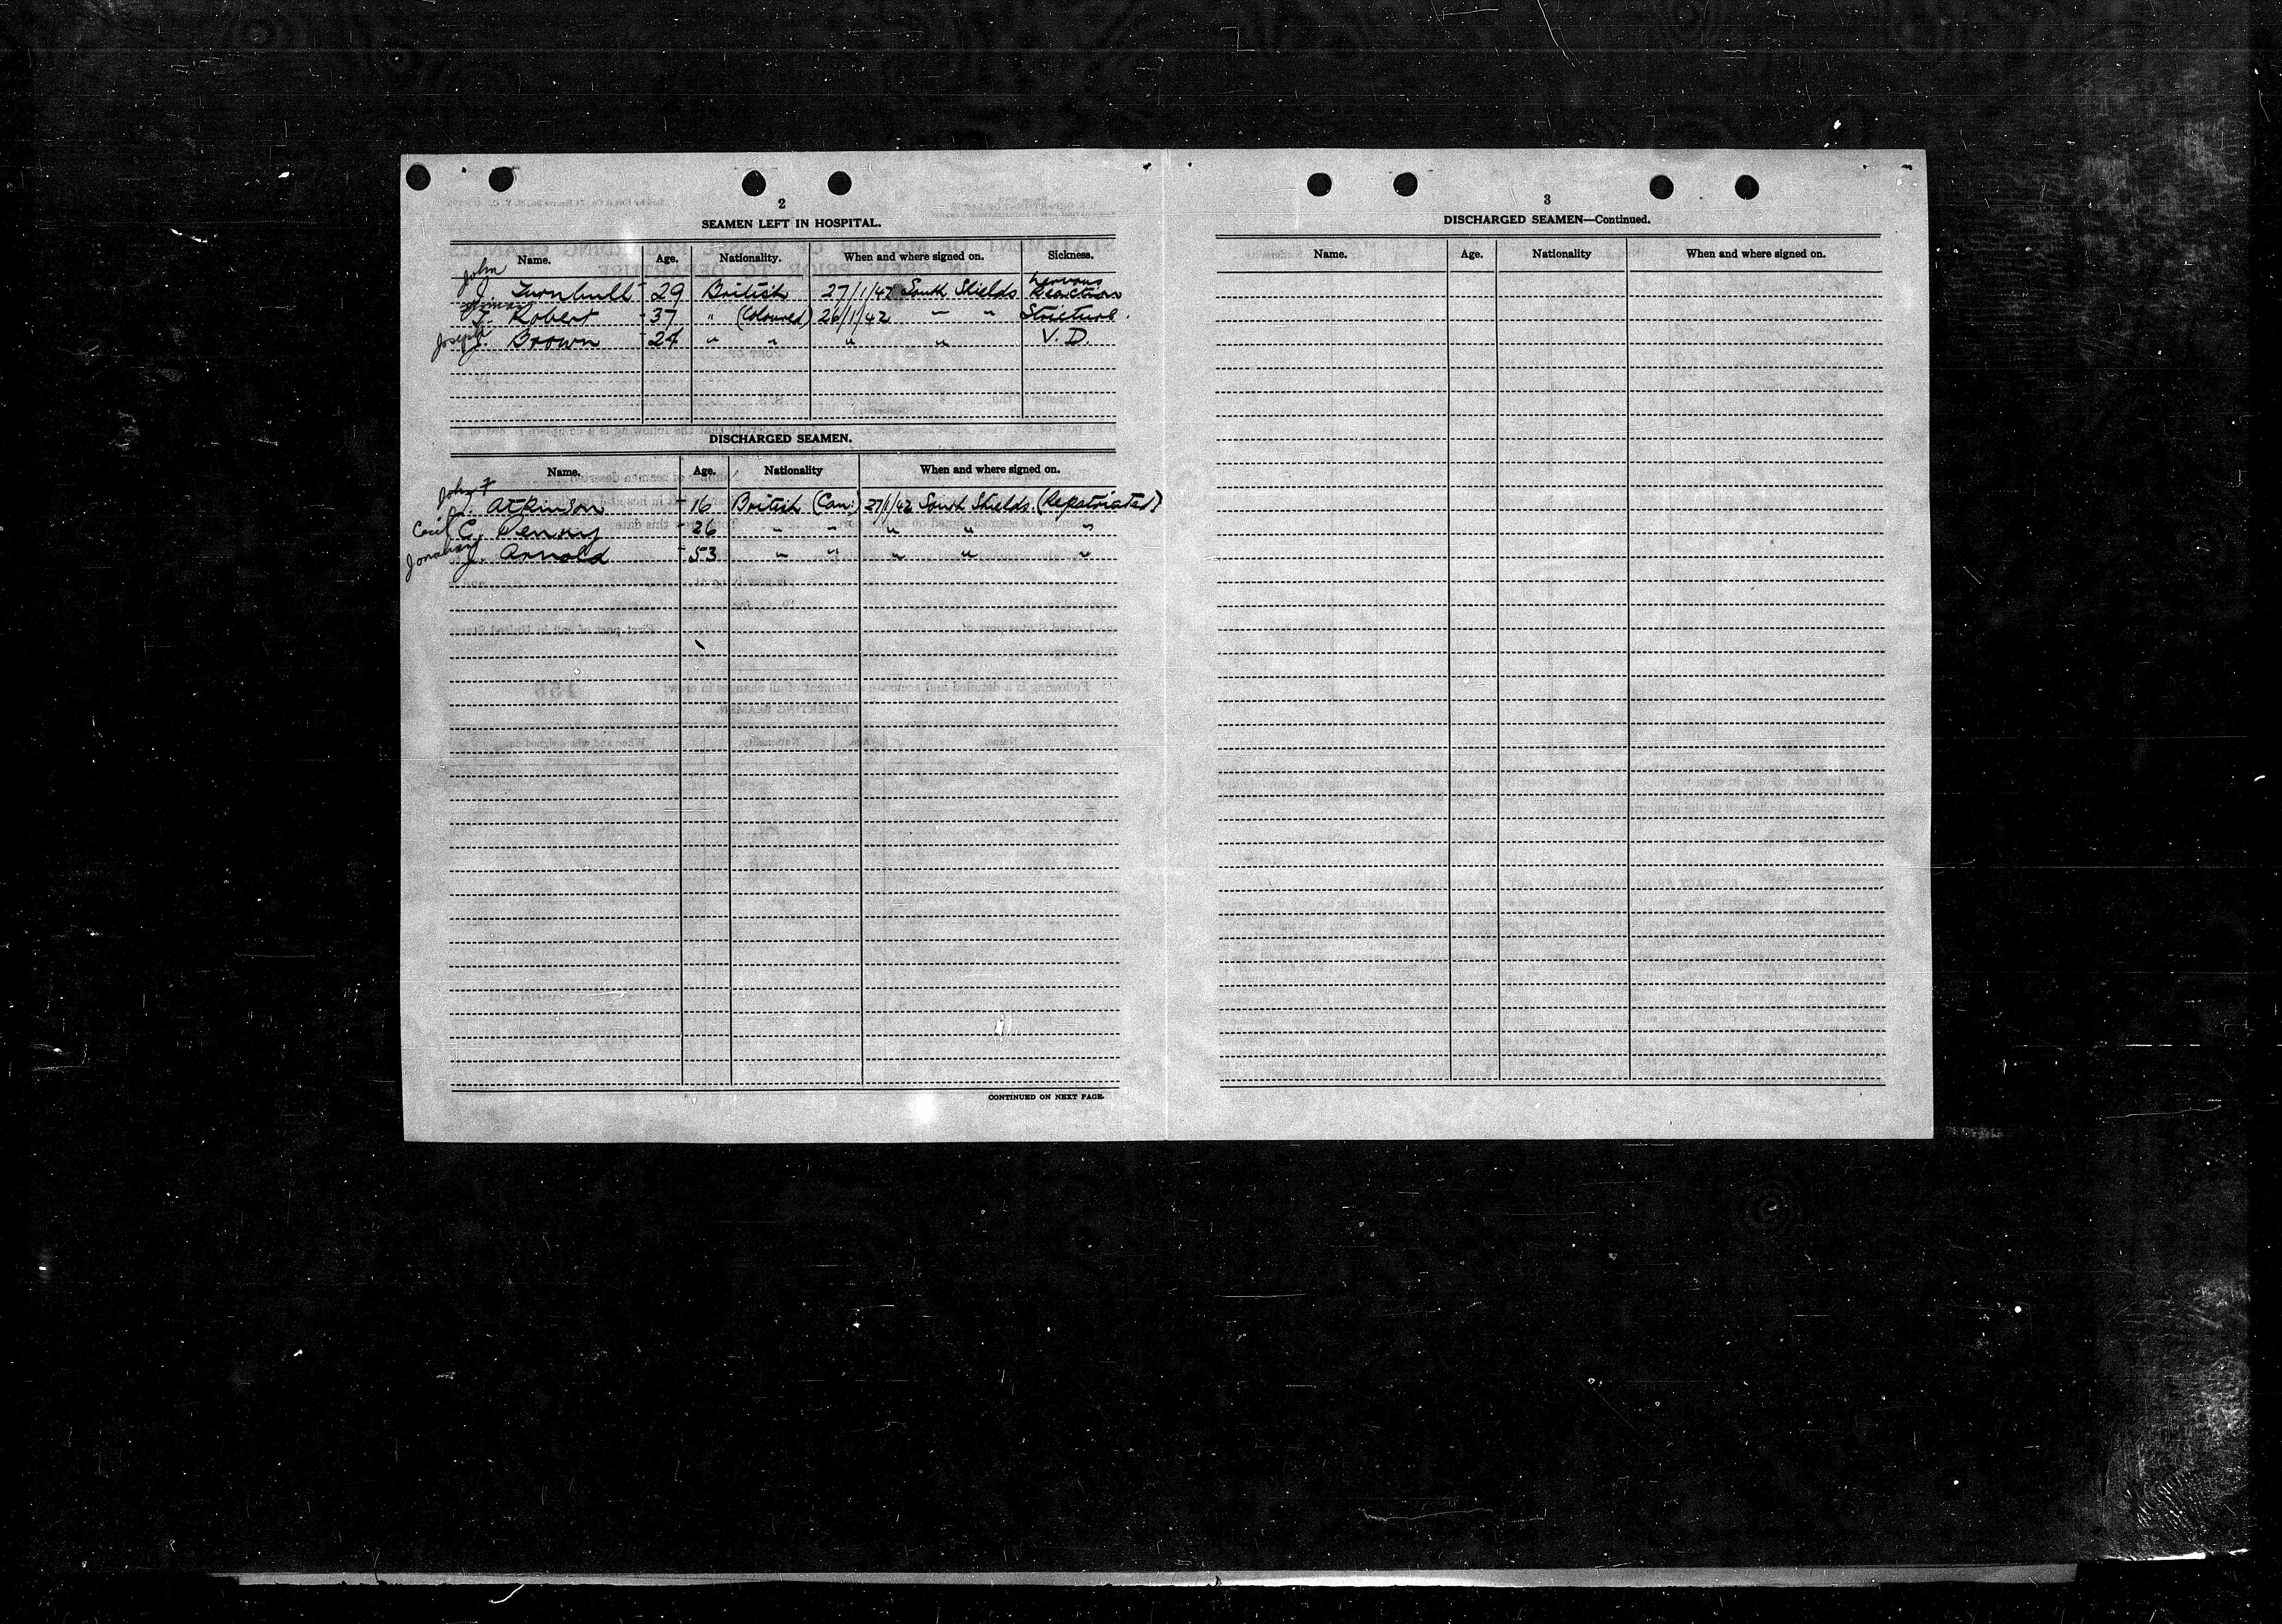 2
SEAMEN LEFT IN HOSPITAL.
Name. Age. Nationality. When and where signed on. Sickness.
John
J. Turnbull - 29 British 27/1/42 South Shields Nervous Reaction
T. Robert - 37 " (Coloured) 26/1/42 " " Stricture.
Joseph J. Brown - 24 " " " " V.D.
DISCHARGED SEAMEN.
Name. Age. Nationality When and where signed on.
John F
J. Atkinson - 16 British (Can.) 27/1/42 South Shields. (Repatriated)
Cecil C. Penny - 26 " " " " "
Jonahan J. Arnold - 53 " " " " "
CONTINUED ON NEXT PAGE.
3
DISCHARGED SEAMEN—Continued.
Name. Age. Nationality When and where signed on.